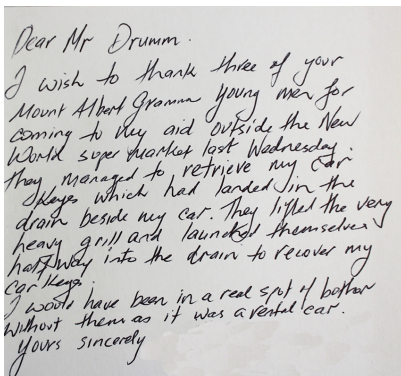 Dear Mr Drumm.
I wish to thank three of your
Mount Albert Gramma young men for
coming to my aid outside the New
World super market last Wednesday.
they managed to retrieve my car
keys which had landed in the
drain beside my car. They lifted the very
heavy grill and launched themselves
half way into the drain to recover my
car keys.
I would have been in a real spot of bother
without them as it was a rental car.
Yours sincerely